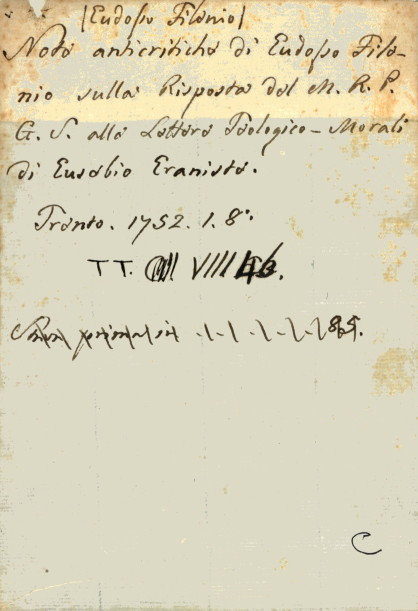 [Eudosso Filenio]
Note anticritiche di Eudosso File-
nio sulla Risposta del M. R. P.
G. S. alle Lettere Teologico-Morali
di Eusebio Eraniste.
Trento. 1752. 1. 8°.
TT. VIII
C